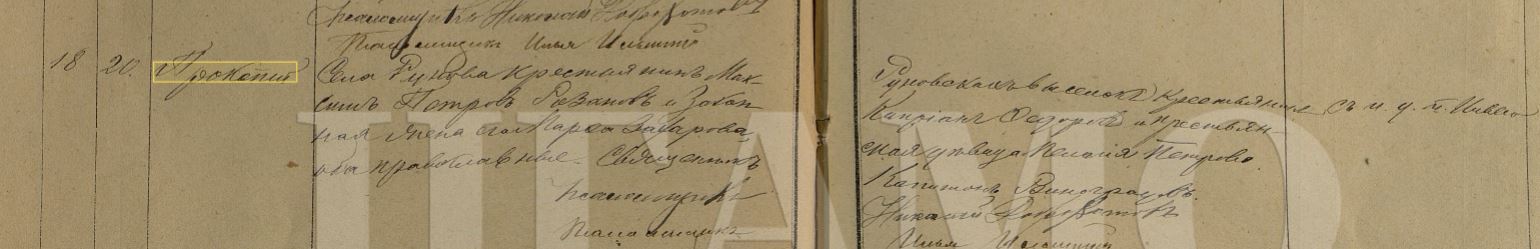 псаломщикъ Николай Доброхотовъ
Псаломщикъ Илья Ильинскій
18 20. Прокопій
Села Рунова крестьянинъ Мак-
симъ Петровъ Розановъ и Закон-
ная жена его Марѳа Захарова,
оба православные. Священникъ
псаломщикъ
Псаломщикъ
Руновскихъ выселокъ крестьянинъ
Кипріанъ Ѳедоровъ и крестьян-
ская дѣвица Пелагія Петрова.
Капитонъ Виноградовъ.
Николай Доброхотовъ
Илья Ильинскій
ЦГАМО